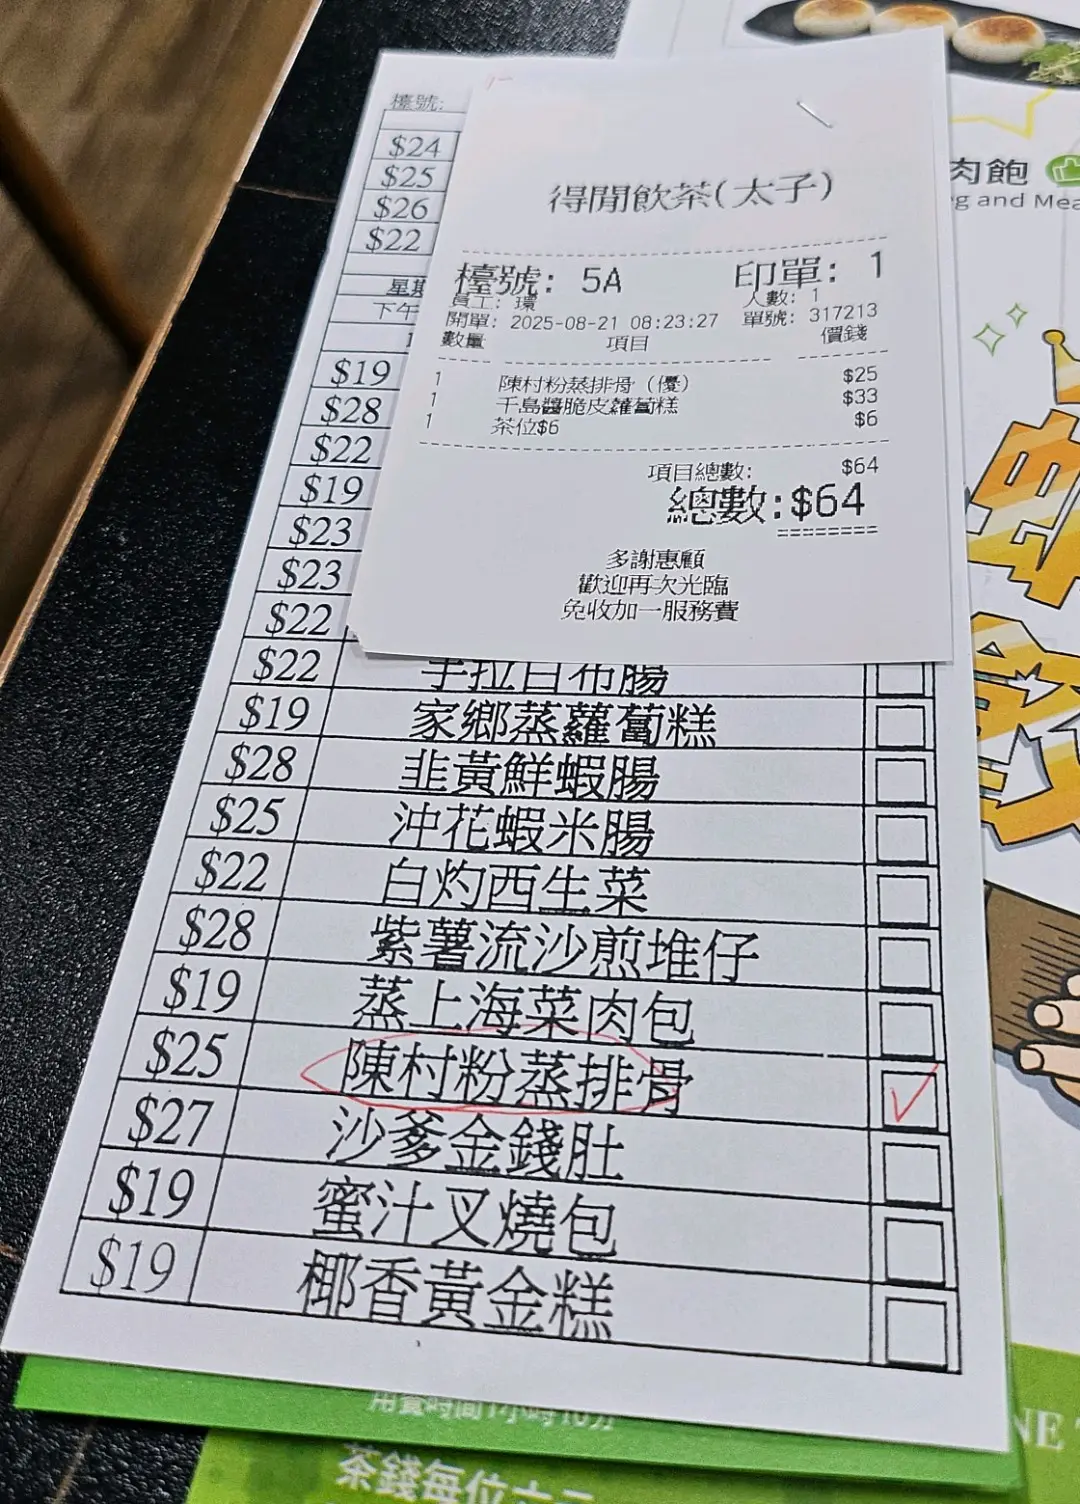 檯號:
$24
$25
$26
$22
星期
下午
$19
$28
$22
$19
$23
$23
$22
得閒飲茶(太子)
檯號: 5A 印單: 1
員工: 環 人數: 1
開單: 2025-08-21 08:23:27 單號: 317213
數量 項目 價錢
1 陳村粉蒸排骨(優) $25
1 千島醬脆皮蘿蔔糕 $33
1 茶位$6 $6
項目總數: $64
總數:$64
多謝惠顧
歡迎再次光臨
免收加一服務費
$22 手拉白布腸
$19 家鄉蒸蘿蔔糕
$28 韭黃鮮蝦腸
$25 沖花蝦米腸
$22 白灼西生菜
$28 紫薯流沙煎堆仔
$19 蒸上海菜肉包
$25 陳村粉蒸排骨
$27 沙爹金錢肚
$19 蜜汁叉燒包
$19 椰香黃金糕
肉飽
g and Mea
茶錢每位六元
NE